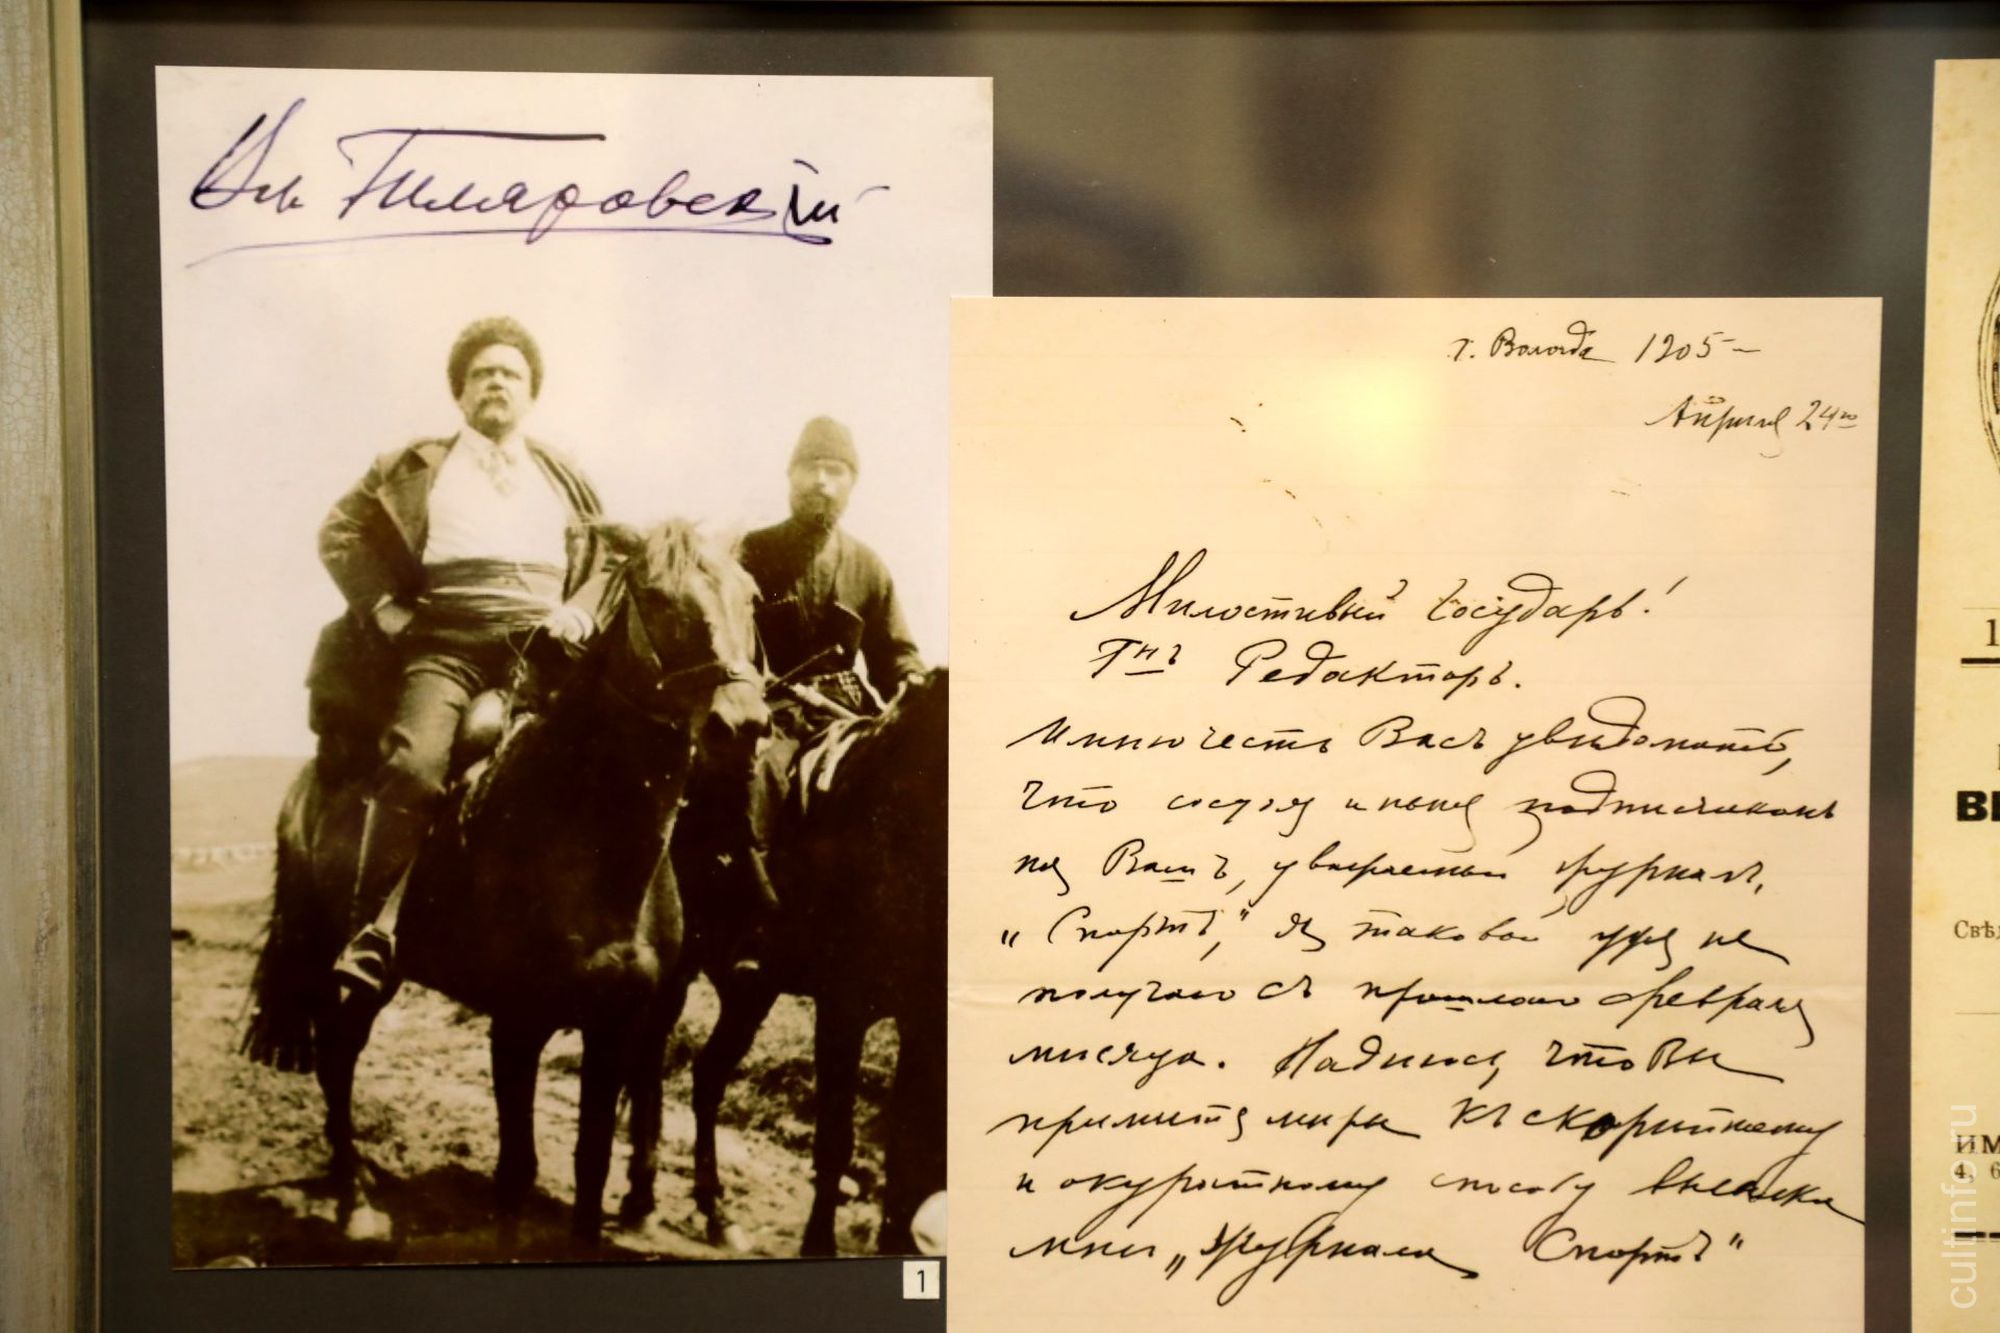 Вл Гиляровскій
1
г. Вологда 1905 –
Апрѣля 24го
Милостивый Государь!
Гнъ Редакторъ.
Имѣю честь Васъ увѣдомить,
что состоя и нынѣ подписчикомъ
на Вашъ, уважаемый журналъ,
„Спортъ," я таковой уже не
получаю съ прошлаго февраля
мѣсяца. Надѣюсь, что Вы
примите мѣры къ скорѣйшему
и акуратному способу высылки
мнѣ „Журнала Спортъ"
1
ВЕ
Свѣд
ИМ
4, 6
cultinfo.ru